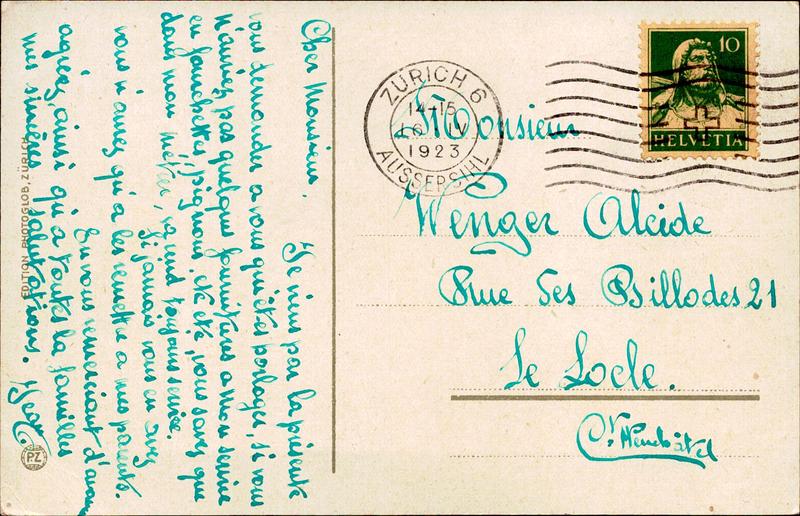 Cher Monsieur,
Je viens par la présente
vous demander a vous qui êtes horloger, si vous
n'auriez pas quelques fournitures a mon service
en fourchettes, pignons, etc etc, vous savez que
dans mon métier, ça rend toujours service.
Si jamais vous en avez
vous n'aurez qu'a les remettre a mes parents.
En vous remerciant d'avance
agréez, ainsi qu'a toutes la familles
mes sincères salutations.
EDITION PHOTOGLOB, ZÜRICH
PZ
ZÜRICH 6
14-15
10 IV
1923
AUSSERSIHL
10
HELVETIA
Monsieur
Wenger Alcide
Rue des Billodes 21
Le Locle.
Ct Neuchâtel